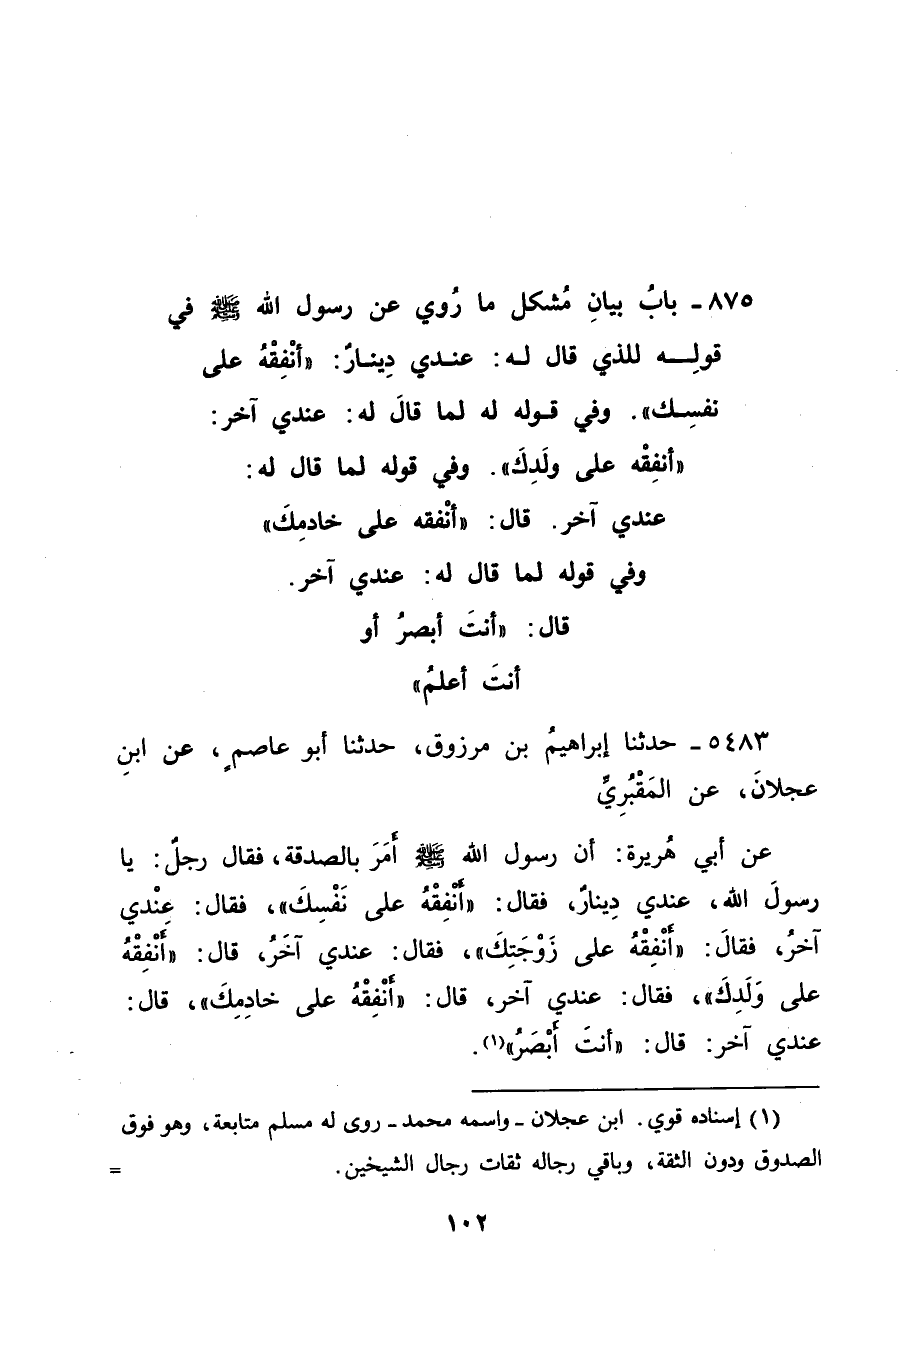 ٨٧٥ ـ بابُ بيانِ مُشكل ما رُوي عن رسول الله ﷺ في
قولِـــه للذي قال لـه: عنـدي دِينـارٌ: «أَنْفِقْهُ على
نفسِـك». وفي قـوله له لما قالَ له: عندي آخر:
«أنفِقْه على ولَدِكَ». وفي قوله لما قال له:
عندي آخر. قال: «أنْفقه على خادمِكَ»
وفي قوله لما قال له: عندي آخر.
قال: «أنتَ أبصرُ أو
أنتَ أعلمُ»
٥٤٨٣ ـ حدثنا إبراهيمُ بن مرزوق، حدثنا أبو عاصمٍ، عن ابنِ
عجلانَ، عن المَقْبُرِيِّ
عن أبي هُريرة: أن رسول الله ﷺ أَمَرَ بالصدقة، فقال رجلٌ: يا
رسولَ الله، عندي دِينارٌ، فقال: «أَنْفِقْهُ على نَفْسِكَ»، فقال: عِنْدي
آخرُ، فقالَ: «أَنْفِقْهُ على زَوْجَتِكَ»، فقال: عندي آخَرُ، قال: «أَنْفِقْهُ
على وَلَدِكَ»، فقال: عندي آخر، قال: «أَنْفِقْهُ على خادِمِكَ»، قال:
عندي آخر: قال: «أنتَ أَبْصَرُ»(١).
(١) إسناده قوي. ابن عجلان ـ واسمه محمد ـ روى له مسلم متابعة، وهو فوق
الصدوق ودون الثقة، وباقي رجاله ثقات رجال الشيخين. =
١٠٢